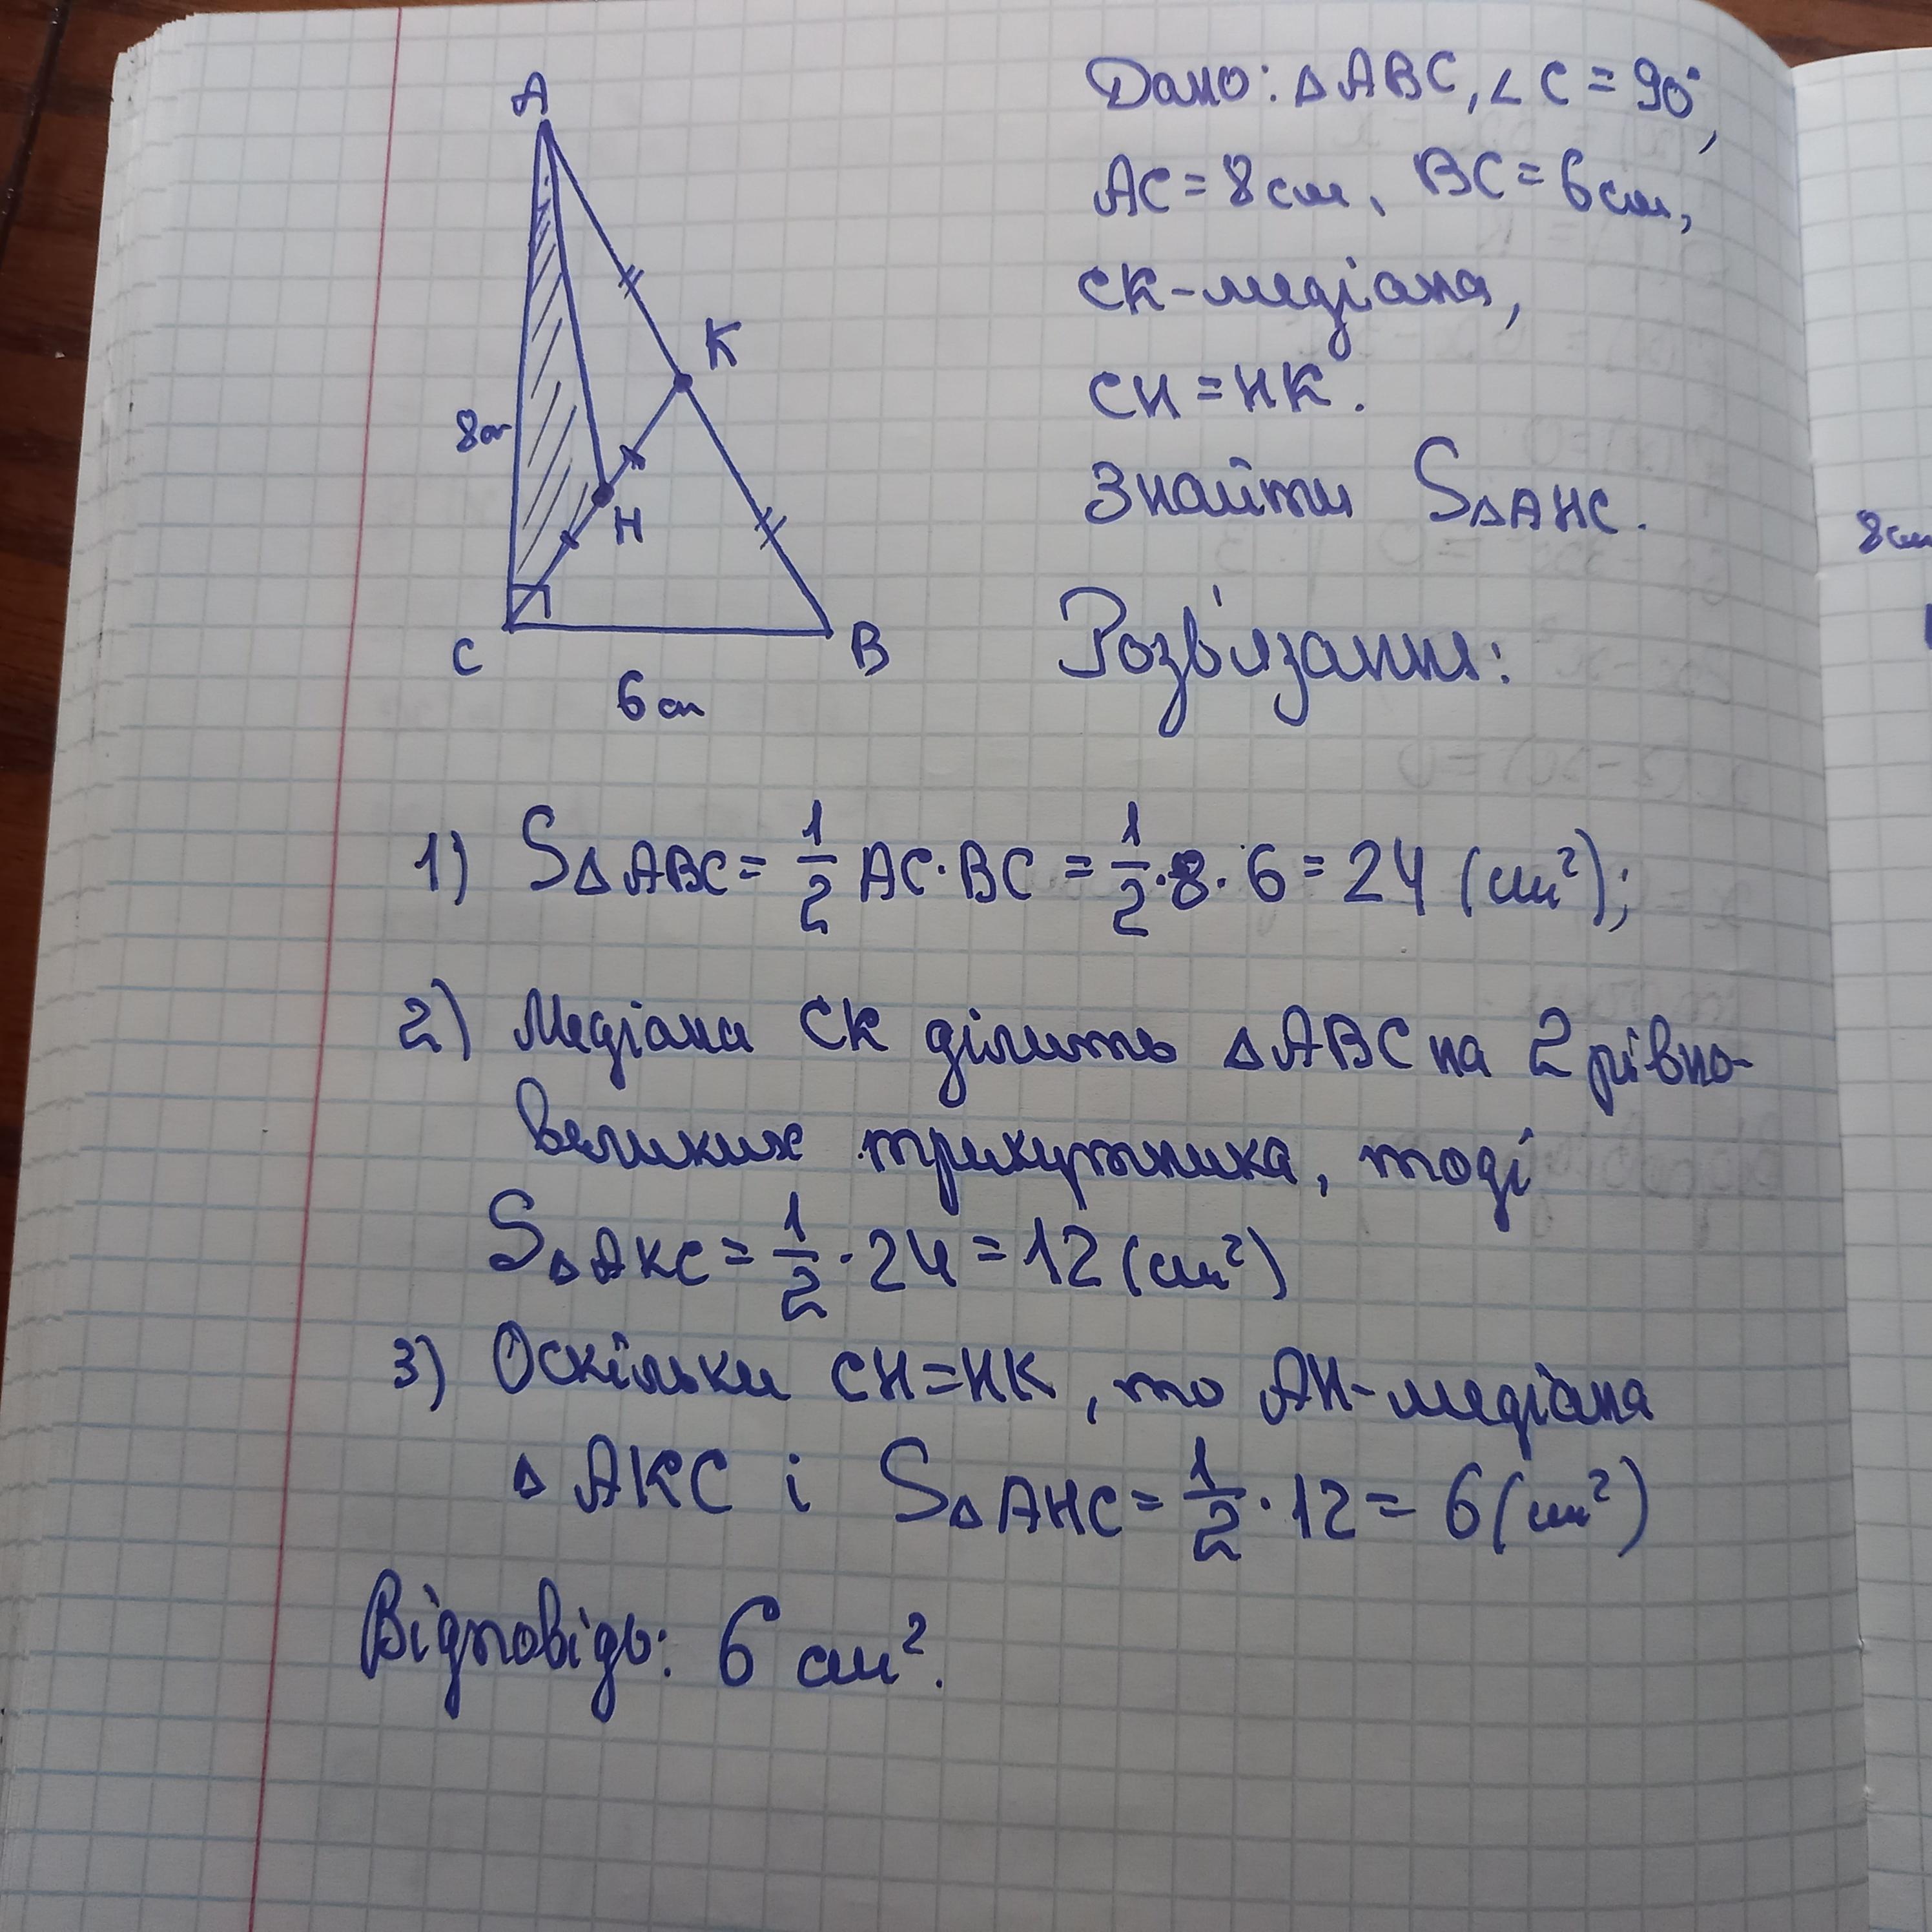 A
K
8см
H
C
B
6 см
Дано: △ABC, ∠C = 90°,
AC = 8 см, BC = 6 см,
CK - медіана,
CH = HK.
Знайти S△AHC.
Розв'язання:
1) S△ABC = 1/2 AC · BC = 1/2 · 8 · 6 = 24 (см²);
2) Медіана CK ділить △ABC на 2 рівно-
великих трикутника, тоді
S△AKC = 1/2 · 24 = 12 (см²)
3) Оскільки CH = HK, то AH - медіана
△ AKC і S△AHC = 1/2 · 12 = 6 (см²)
Відповідь: 6 см².
8см